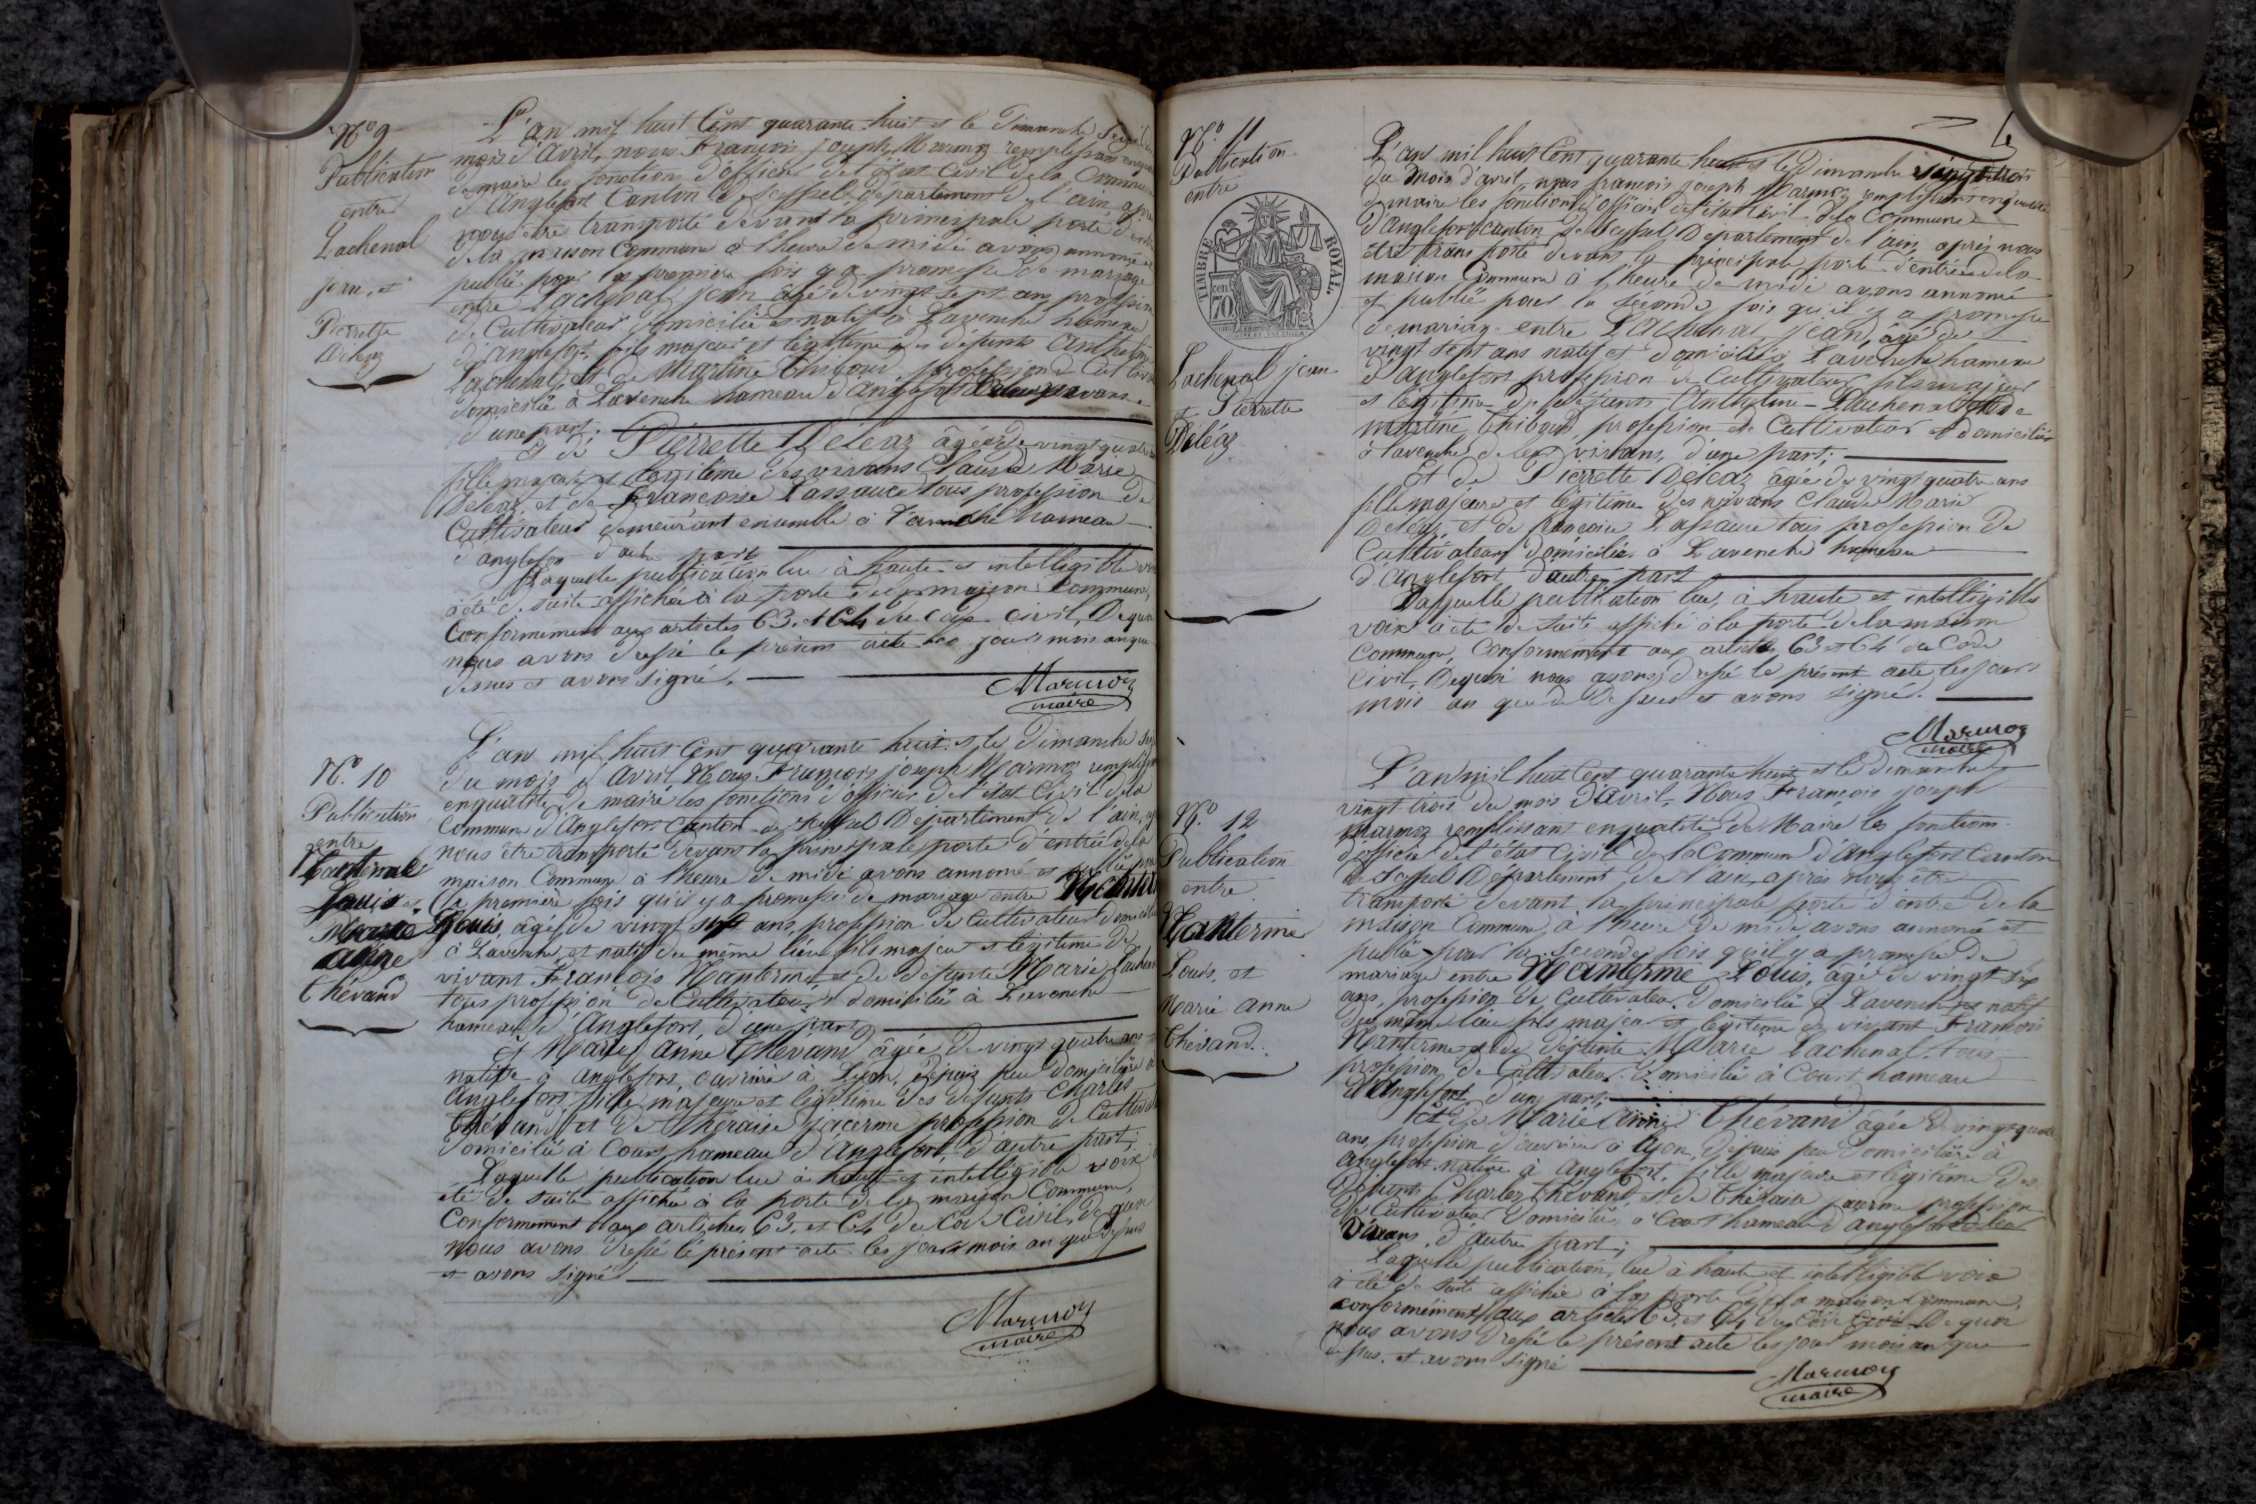 N° 9
Publication
entre
Lachenal
jean, et
Pierrette
Déléaz
L'an mil huit Cent quarante huit et le Dimanche
mois d'avril, nous François joseph Marmoz remplissant enqualité
de maire les fonctions d'officier de l'état Civil de la Commune
d'Anglefort Canton de Seyssel, département de l'ain, après
nous être transporté devant la principale porte d'entrée
de la maison Commune à l'heure de midi avons annoncé et
publié pour la première fois q'y a promesse de mariage
entre Lachenal jean âgé de vingt sept ans, profession
de Cultivateur domicilié et natif à Lavenche hameau
d'anglefort, fils majeur et légitime des défunts Anthelme
Lachenal et de Martine Thiboud, profession de Cultivateur
domicilié à Lavenche hameau d'anglefort
d'une part.
et de Pierrette Déléaz âgée de vingt quatre
fille majeure et légitime des vivans Claude Marie
Déléaz et de Françoise Lassauce tous profession de
Cultivateur demeurant ensemble à Lavenche hameau
d'anglefort d'autre part
Laquelle publication lue à haute et intelligible voix
a été de suite affichée à la porte de la maison Commune,
Conformément aux articles 63 et 64 du code Civil, De quoi
nous avons dressé le présent acte les jour mois an que
dessus et avons signé.
Marmoz
maire
N° 10
Publication
entre
Manterme
Louis et
Marie
anne
Thévand
L'an mil huit Cent quarante huit et le Dimanche
du mois d'avril, Nous François joseph Marmoz remplissant
enqualité de maire les fonctions d'officier de l'état Civil de la
Commune d'Anglefort Canton de Seyssel Département de l'ain,
nous être transporté devant la principale porte d'entrée de la
maison Commune à l'heure de midi avons annoncé et publié pour
la première fois qu'il y a promesse de mariage entre Manterme
Louis, âgé de vingt six ans, profession de Cultivateur domicilié
à Lavenche et natif du même lieu fils majeur et légitime de
vivant François Manterme et de défunte Marie Lachenal
tous profession de Cultivateur, domicilié à Lavenche
hameau d'Anglefort, d'une part
Et Marie anne Thévand âgée de vingt quatre ans
native à anglefort, ouvrière à Lyon, depuis peu domiciliée à
anglefort, fille majeure et légitime des défunts Charles
Thévand et de Théraise jacerme profession de Cultivateur
Domicilié à Court hameau d'Anglefort, d'autre part;
Laquelle publication lue à haute et intelligible voix
été de suite affichée à la porte de la maison Commune,
Conformément aux articles 63 et 64 du Code Civil, de quoi
nous avons dressé le présent acte les jour mois an que dessus
et avons signé
Marmoz
maire
N° 11
Publication
entre
TIMBRE ROYAL
70
Lachenal jean
et Pierrette
Déléaz
L'an mil huit Cent quarante huit et le Dimanche vingt trois
du mois d'avril, nous françois joseph Marmoz remplissant enqualité
de maire les fonctions d'officier de l'état Civil de la Commune
d'Anglefort canton de Seyssel Département de l'ain, après nous
être transporté devant la principale porte d'entrée de la
maison Commune à l'heure de midi avons annoncé
et publié pour la seconde fois qu'il y a promesse
de mariage entre Lachenal jean, âgé de
vingt sept ans natif et domicilié à Lavenche hameau
d'anglefort profession de Cultivateur fils majeur
et légitime de défunts Anthelme Lachenal et de
Martine Thiboud, profession de Cultivateur et domicilié
à Lavenche d'une part;
Et de Pierrette Déléaz âgée de vingt quatre ans
fille majeure et légitime des vivans Claude Marie
Déléaz et de françoise Lassauce tous profession de
Cultivateur domiciliés à Lavenche hameau
d'Anglefort d'autre part
Laquelle publication lue, à haute et intelligible
voix a été de suite affiché à la porte de la maison
commune, Conformément aux articles 63 et 64 du Code
Civil. De quoi nous avons dressé le présent acte les jour
mois an que de Dessus et avons signé.
Marmoz
maire
N° 12
Publication
entre
Manterme
Louis, et
Marie anne
Thévand.
L'an mil huit Cent quarante huit et le dimanche
vingt trois du mois d'avril, Nous François joseph
Marmoz remplissant enqualité de Maire les fonctions
d'officier de l'état Civil de la Commune d'Anglefort Canton
de Seyssel Département de l'ain, après nous être
transporté devant la principale porte d'entre de la
maison Commune, à l'heure de midi avons annoncé et
publié pour la Seconde fois qu'il y a promesse de
mariage entre Manterme Louis, âgé de vingt six
ans, profession de Cultivateur domicilié à Lavenche natif
du même lieu fils majeur et légitime de vivant François
Manterme et de défunte Marie Lachenal. tous
profession de Cultivateur. Domicilié à Court hameau
d'Anglefort d'un part
Et de Marie Anne Thévand âgée de vingt quatre
ans, profession d'ouvrière à Lyon, depuis peu domiciliée à
anglefort native à Anglefort. fille majeure et légitime des
défunts Charles Thévand et de Théraise jacerme profession
de Cultivateur Domicilié à Court hameau d'anglefort
d'autre part;
Laquelle publication, lue à haute et intelligible voix
a été de suite affichée à la porte de la maison Commune,
conformément aux articles 63 et 64 du Code Civil De quoi
nous avons dressé le présent acte les jour mois an que
dessus. et avons signé
Marmoz
maire